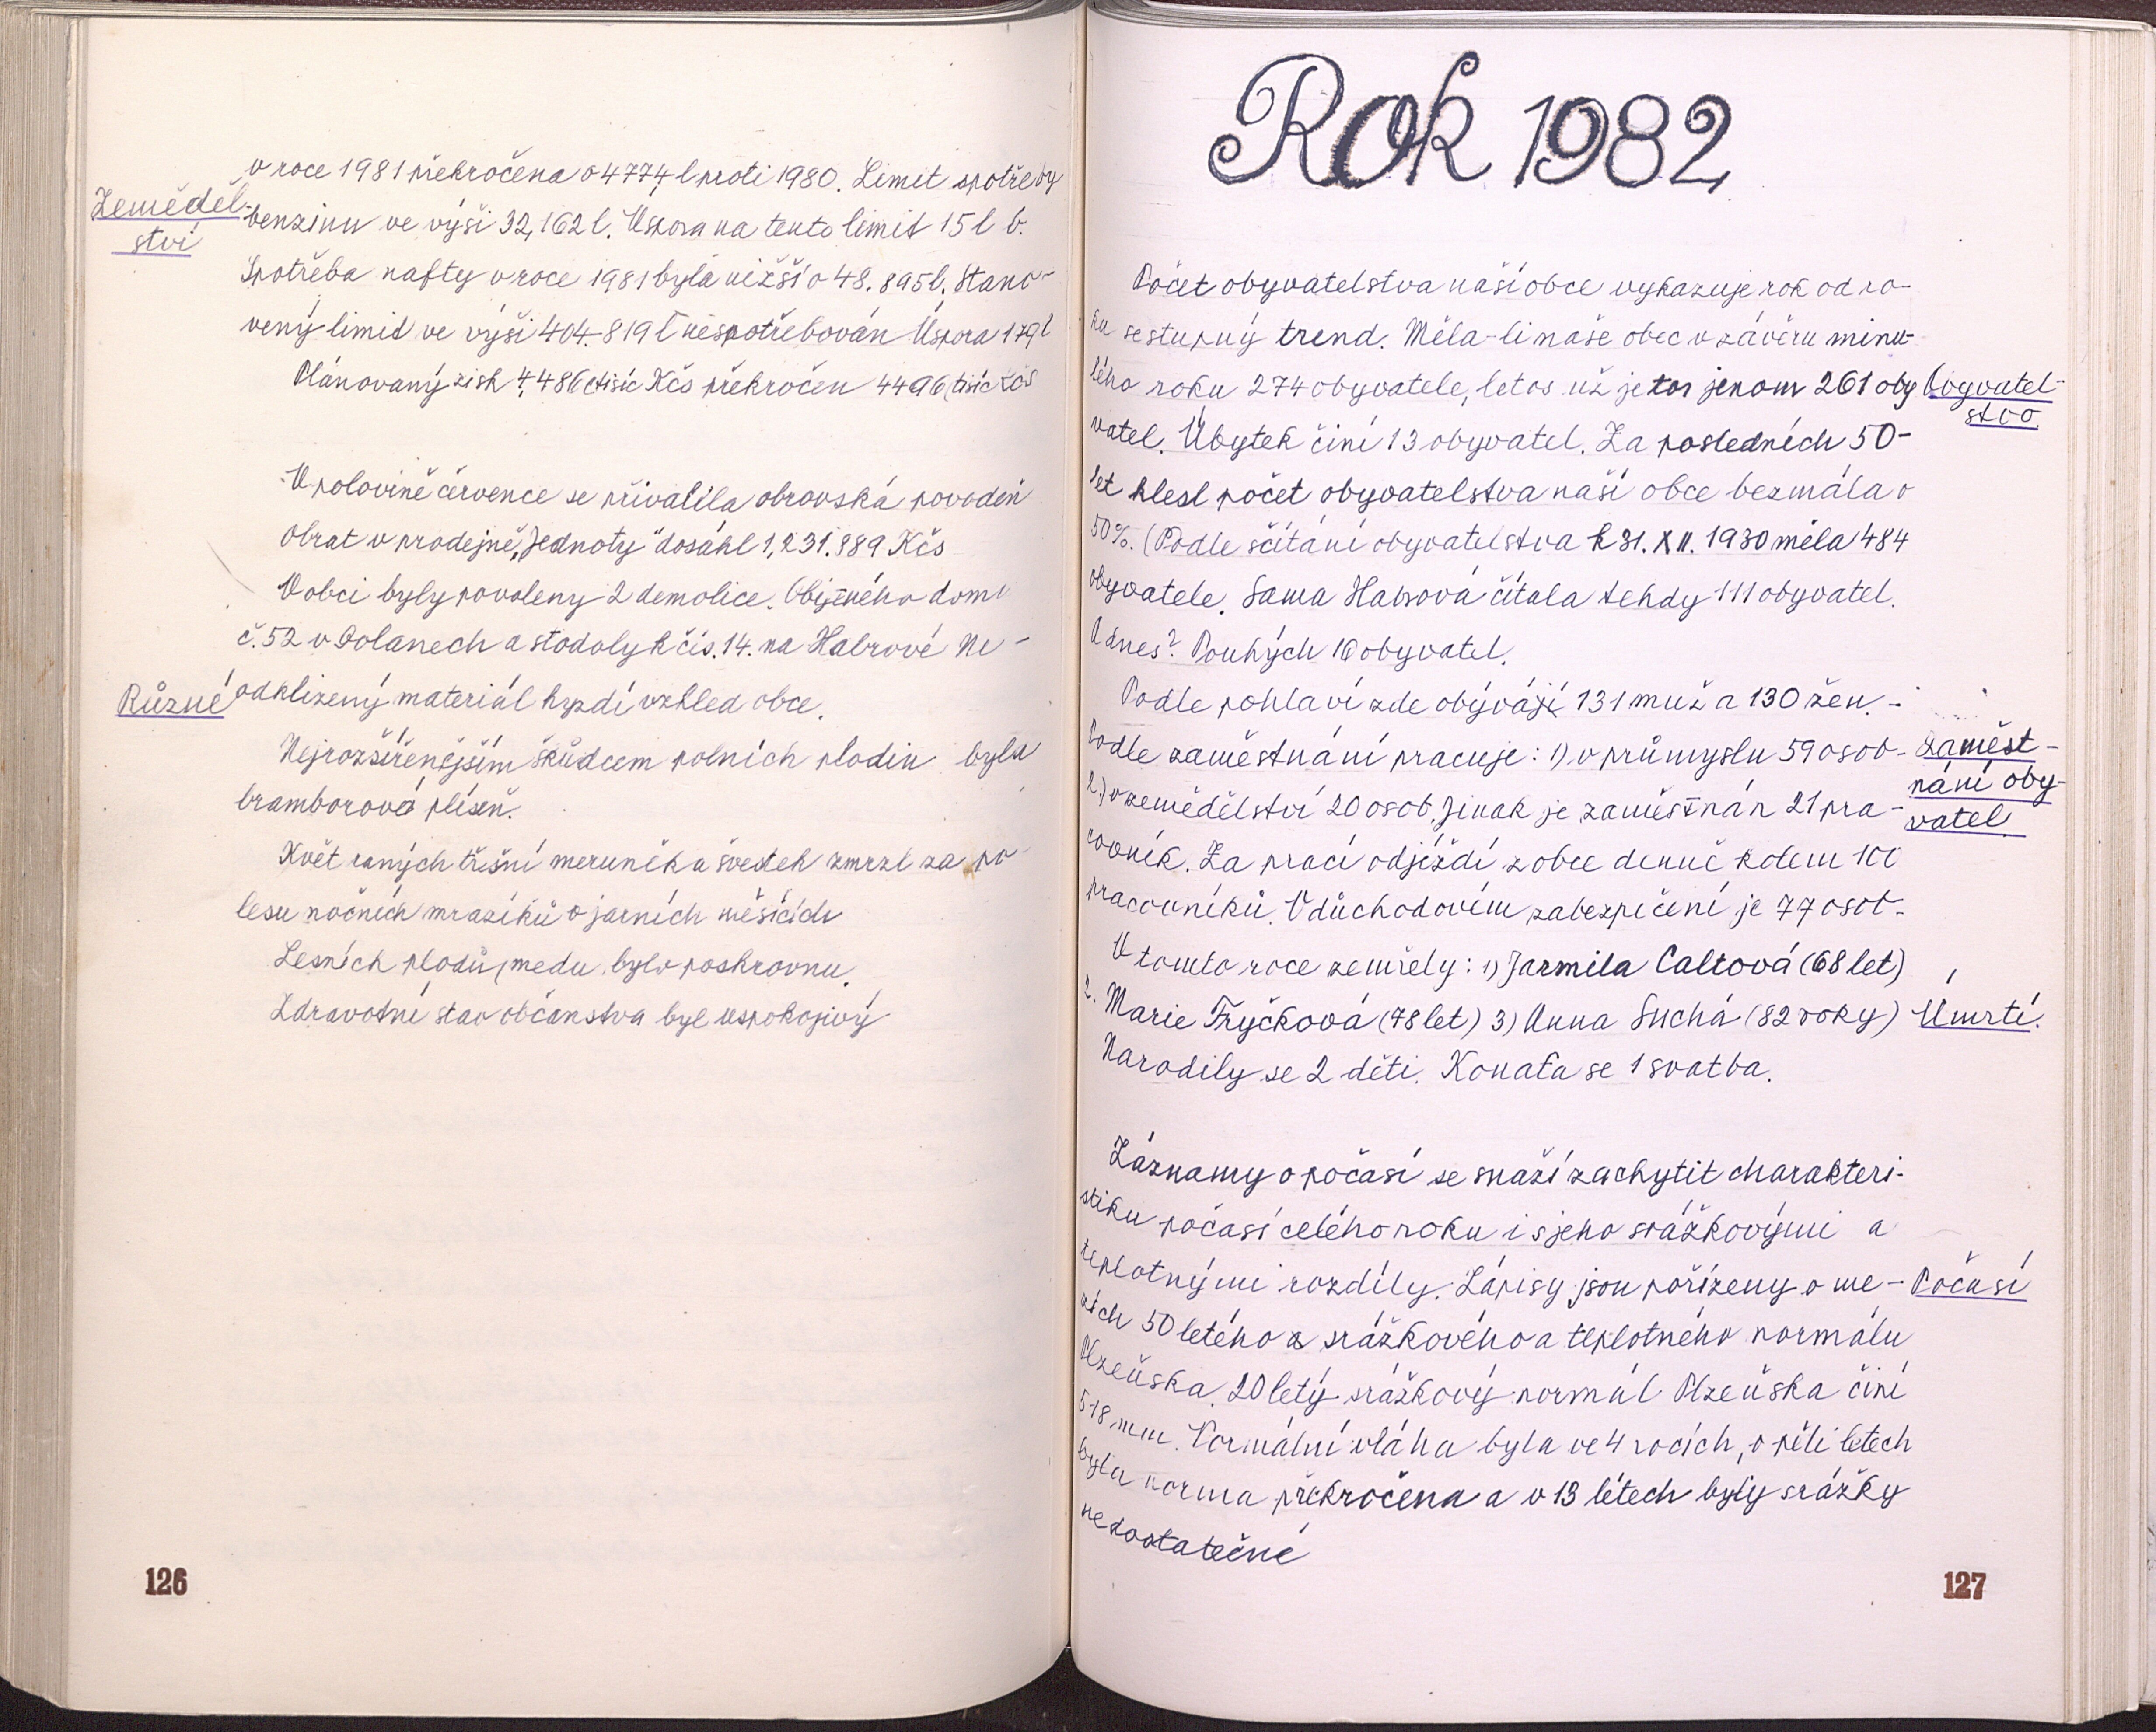 v roce 1981 překročena o 4774 l proti 1980. Limit spotřeby
Zeměděl-
ství
benzinu ve výši 32,162 l. Úspora na tento limit 15 l b.
Spotřeba nafty v roce 1981 byla nižší o 48.895 l. Stano-
vený limit ve výši 404.819 l nespotřebován Úspora 179 l
Plánovaný zisk 4.486 tisíc Kčs překročen 4496 tisíc Kčs
V polovině července se přivalila obrovská povodeň
Obrat v prodejně "Jednoty" dosáhl 1,231.989 Kčs
V obci byly povoleny 2 demolice. Obytného domu
č. 52 v Dolanech a stodoly k čís. 14. na Habrové Ne-
Různé
odklizený materiál hyzdí vzhled obce.
Nejrozšířenějším škůdcem polních plodin byla
bramborová plíseň.
Květ raných třešní meruněk a švestek zmrzl za po-
lesu nočních mrazíků v jarních měsících
Lesních plodů, medu bylo poskrovnu.
Zdravotní stav občanstva byl uspokojivý
126
Rok 1982
Počet obyvatelstva naší obce vykazuje rok od ro-
ku sestupný trend. Měla-li naše obec v závěru minu-
lého roku 274 obyvatele, letos už je tor jenom 261 oby
Obyvatel-
stvo
vatel. Úbytek činí 13 obyvatel. Za posledních 50-
let klesl počet obyvatelstva naší obce bezmála o
50%. (Podle sčítání obyvatelstva k 31. XII. 1930 měla 484
obyvatele. Sama Habrová čítala tehdy 111 obyvatel.
A dnes? Pouhých 16 obyvatel.
Podle pohlaví zde obývájí 131 muž a 130 žen.-
Podle zaměstnání pracuje: 1) v průmyslu 59 osob-
Zaměst-
nání oby-
vatel.
2.) v zemědělství 20 osob. Jinak je zaměstnán 21 pra-
covník. Za prací odjíždí z obce denně kolem 100
pracovníků. V důchodovém zabezpečení je 77 osob-
V tomto roce zemřely: 1) Jarmila Caltová (68 let)
2. Marie Fryčková (78 let) 3) Anna Suchá (82 roky)
Úmrtí.
Narodily se 2 děti. Konala se 1 svatba.
Záznamy o počasí se snaží zachytit charakteri-
stiku počasí celého roku i s jeho srážkovými a
teplotnými rozdíly. Zápisy jsou pořízeny o me-
Počasí
zích 50 letého a srážkového a teplotného normálu
Plzeňska. 20 letý srážkový normál Plzeňska činí
518 mm. Normální vláha byla ve 4 rocích, v pěti letech
byla norma překročena a v 13 létech byly srážky
nedostatečné
127